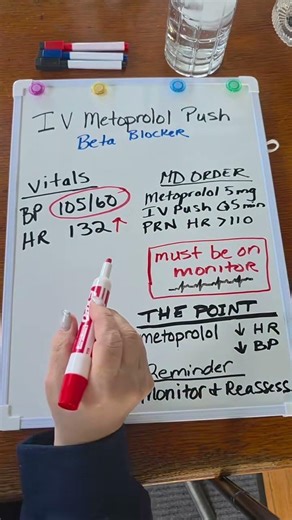 IV Metoprolol Push
Beta Blocker
Vitals
BP 105/60
HR 132 ↑
MD ORDER
Metoprolol 5mg
IV Push Q5min
PRN HR >110
must be on
monitor
THE POINT
metoprolol ↓ HR
↓ BP
Reminder
Monitor & Reassess